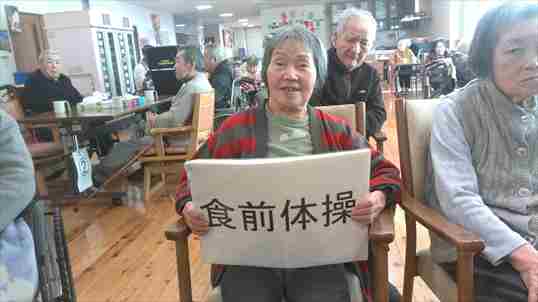 食前体操